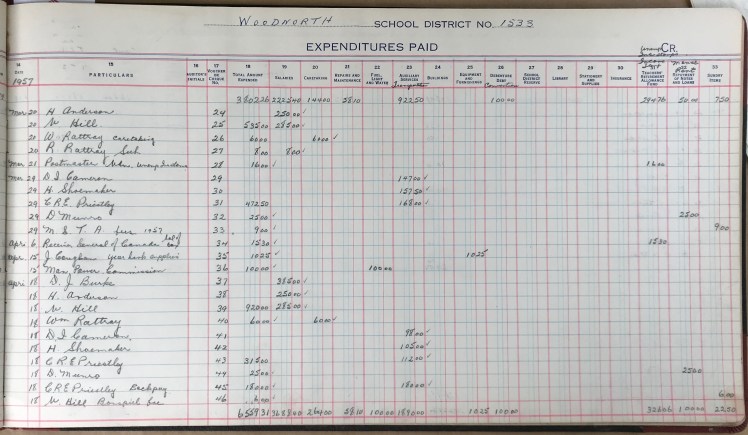 WOODNORTH SCHOOL DISTRICT NO. 1533
EXPENDITURES PAID CR.
14 15 16 17 18 19 20 21 22 23 24 25 26 27 28 29 30 31 32 33
DATE PARTICULARS AUDITOR'S INITIALS VOUCHER OR CHEQUE NO. TOTAL AMOUNT EXPENDED SALARIES CARETAKING REPAIRS AND MAINTENANCE FUEL, LIGHT AND WATER AUXILIARY SERVICES BUILDINGS EQUIPMENT AND FURNISHINGS DEBENTURE DEBT SCHOOL DISTRICT RESERVE LIBRARY STATIONERY AND SUPPLIES INSURANCE TEACHERS' RETIREMENT ALLOWANCE FUND REPAYMENT OF NOTES AND LOANS SUNDRY ITEMS
1957
380226 222540 14400 5810 92250 10000 29476 5000 750
Mar 20 H. Anderson 24 25000
20 W. Hill 25 53500 28500
20 W Rattray caretaking 26 6000 6000
20 R Rattray Sub 27 800 800
Mar 21 Postmaster 28 1600 1600
Mar 29 D I Cameron 29 14700
29 H. Shoemaker 30 15750
29 C R E Priestley 31 47250 16800
29 D Munro 32 2500 2500
29 M S T. A fees 1957 33 900 900
Apr 6 Receiver General of Canada 34 1530 1530
Apr. 15 J. Coughan year book supplies 35 1025 1025
15 Man. Power Commission 36 10000 10000
Apr 18 D. J Burke 37 38500
18 H. Anderson 38 25000
18 W. Hill 39 92000 28500
18 Wm Rattray 40 6000 6000
18 D I Cameron 41 9800
18 H Shoemaker 42 10500
18 C R E Priestley 43 31500 11200
18 D. Munro 44 2500 2500
18 C R E Priestley Backpay 45 18000 18000
18 W. Hill Bonspiel fee 46 600 600
655931 368800 26400 5810 10000 189000 1025 10000 32606 10000 2250